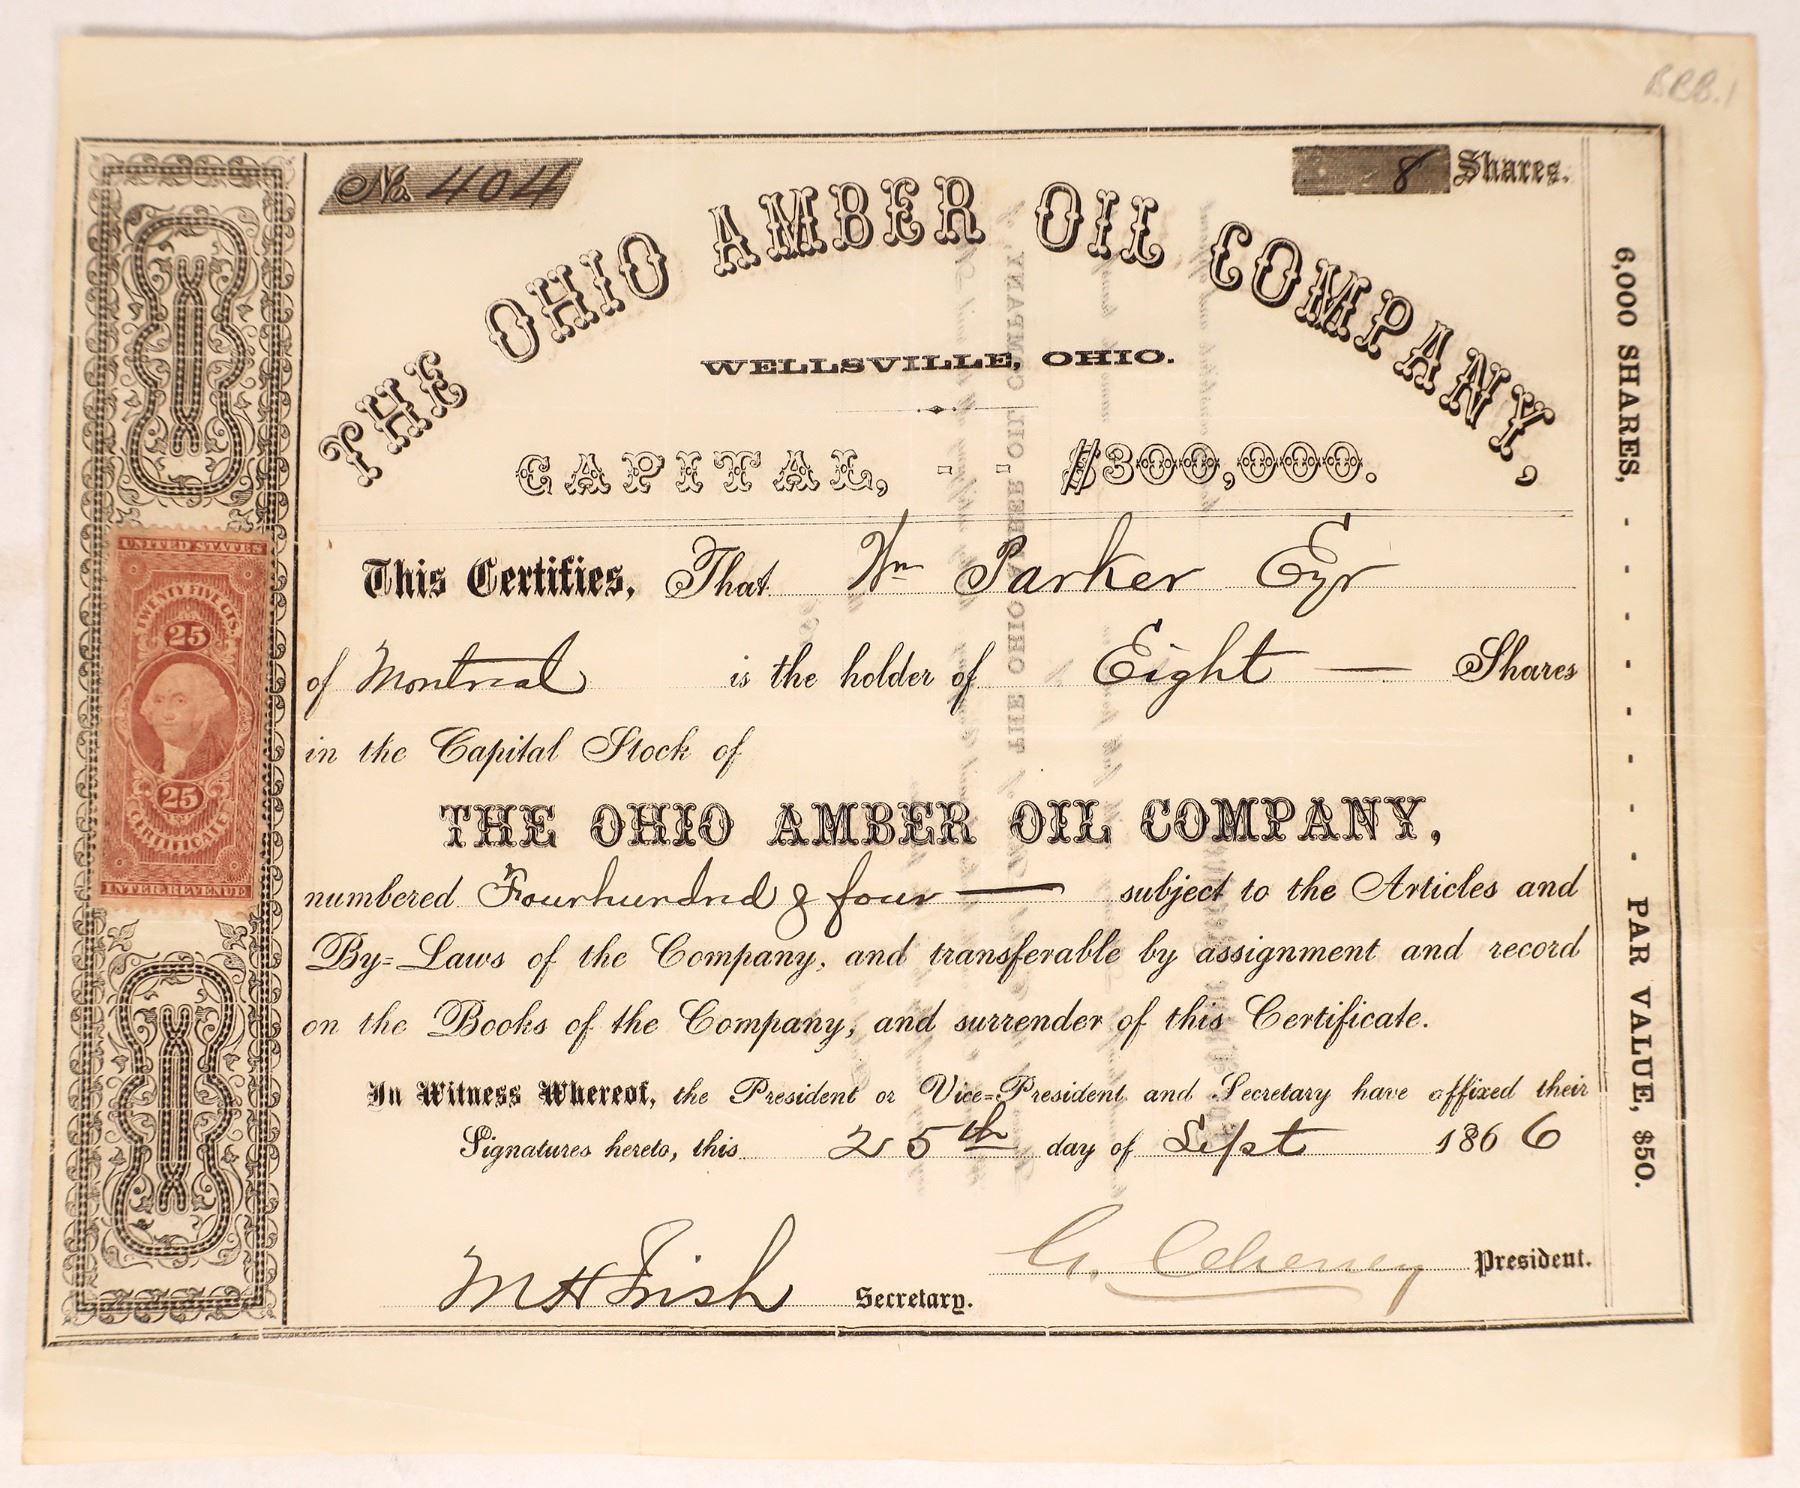 BBB.1
No. 404
8 Shares.
THE OHIO AMBER OIL COMPANY,
WELLSVILLE, OHIO.
CAPITAL, - - $300,000.
This Certifies, That Wm Parker Eyr
of Montreal is the holder of Eight — Shares
in the Capital Stock of
THE OHIO AMBER OIL COMPANY,
numbered Fourhundred & four — subject to the Articles and
By-Laws of the Company, and transferable by assignment and record
on the Books of the Company, and surrender of this Certificate.
In Witness Whereof, the President or Vice-President and Secretary have affixed their
Signatures hereto, this 25th day of Sept 1866
G. Cheney President.
M H Irish Secretary.
6,000 SHARES, - - - - - - PAR VALUE, $50.
UNITED STATES
TWENTY FIVE CTS.
25
25
CERTIFICATE
INTER. REVENUE